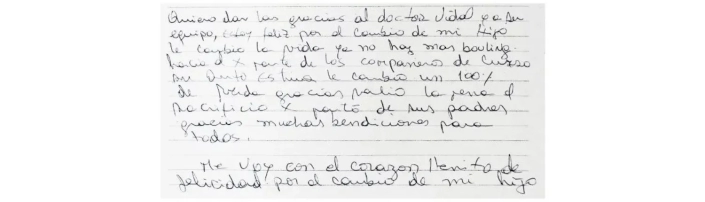 Quiero dar las gracias al doctor Vidal y a su
equipo, estoy feliz por el cambio de mi Hijo
le cambio la vida ya no hay mas bouling
hacia el x parte de los compañeros de Curso
su a un 100%
de vida gracias valio la pena el
sacrificio x parte de sus padres
gracias muchas bendiciones para
todos.
Me voy con el corazon llenito de
felicidad por el cambio de mi hijo